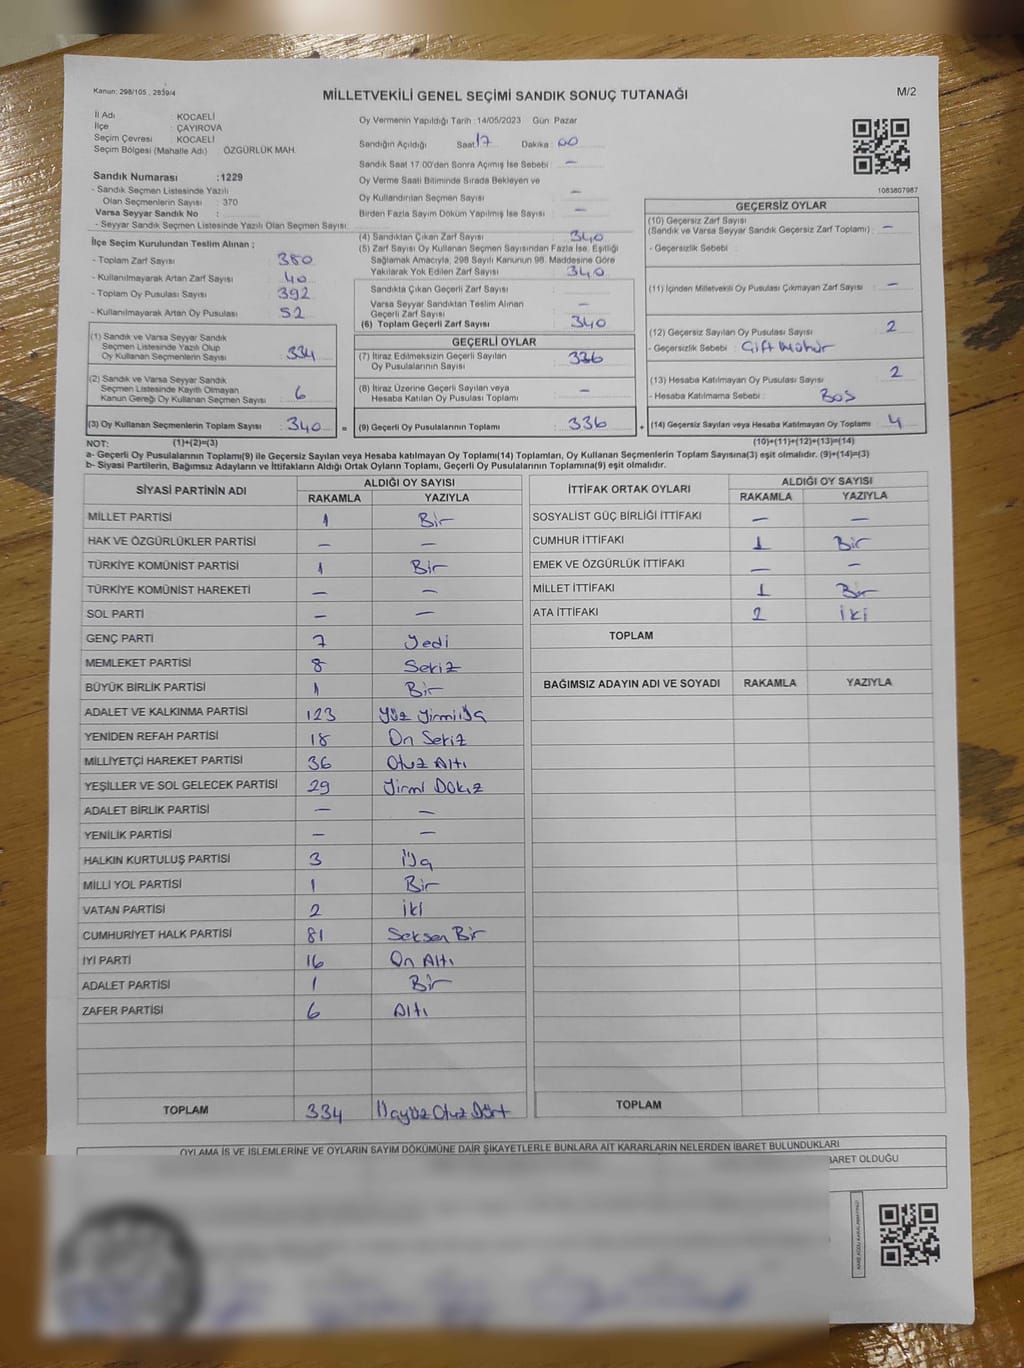 Kanun: 298/105 , 2839/4
MİLLETVEKİLİ GENEL SEÇİMİ SANDIK SONUÇ TUTANAĞI
M/2
İl Adı : KOCAELİ
İlçe : ÇAYIROVA
Seçim Çevresi : KOCAELİ
Seçim Bölgesi (Mahalle Adı) : ÖZGÜRLÜK MAH.
Sandık Numarası :1229
- Sandık Seçmen Listesinde Yazılı
Olan Seçmenlerin Sayısı : 370
Varsa Seyyar Sandık No :
- Seyyar Sandık Seçmen Listesinde Yazılı Olan Seçmen Sayısı
İlçe Seçim Kurulundan Teslim Alınan ;
- Toplam Zarf Sayısı : 380
- Kullanılmayarak Artan Zarf Sayısı : 40
- Toplam Oy Pusulası Sayısı : 392
- Kullanılmayarak Artan Oy Pusulası : 52
(1) Sandık ve Varsa Seyyar Sandık
Seçmen Listesinde Yazılı Olup
Oy Kullanan Seçmenlerin Sayısı : 334
(2) Sandık ve Varsa Seyyar Sandık
Seçmen Listesinde Kayıtlı Olmayan
Kanun Gereği Oy Kullanan Seçmen Sayısı : 6
(3) Oy Kullanan Seçmenlerin Toplam Sayısı : 340 =
Oy Vermenin Yapıldığı Tarih :14/05/2023 Gün: Pazar
Sandığın Açıldığı Saat 17 Dakika : 00
Sandık Saat 17.00'dan Sonra Açımış İse Sebebi : —
Oy Verme Saati Bitiminde Sırada Bekleyen ve
Oy Kullandırılan Seçmen Sayısı —
Birden Fazla Sayım Döküm Yapılmış İse Sayısı —
(4) Sandıktan Çıkan Zarf Sayısı : 340
(5) Zarf Sayısı Oy Kullanan Seçmen Sayısından Fazla İse, Eşitliği
Sağlamak Amacıyla, 298 Sayılı Kanunun 98. Maddesine Göre
Yakılarak Yok Edilen Zarf Sayısı : 340
Sandıkta Çıkan Geçerli Zarf Sayısı :
Varsa Seyyar Sandıktan Teslim Alınan
Geçerli Zarf Sayısı : —
(6) Toplam Geçerli Zarf Sayısı : 340
GEÇERLİ OYLAR
(7) İtiraz Edilmeksizin Geçerli Sayılan
Oy Pusulalarının Sayısı : 336
(8) İtiraz Üzerine Geçerli Sayılan veya
Hesaba Katılan Oy Pusulası Toplamı : —
(9) Geçerli Oy Pusulalarının Toplamı : 336 +
1083807987
GEÇERSİZ OYLAR
(10) Geçersiz Zarf Sayısı
(Sandık ve Varsa Seyyar Sandık Geçersiz Zarf Toplamı) : —
- Geçersizlik Sebebi :
(11) İçinden Milletvekili Oy Pusulası Çıkmayan Zarf Sayısı : —
(12) Geçersiz Sayılan Oy Pusulası Sayısı : 2
- Geçersizlik Sebebi : Çift Mühür
(13) Hesaba Katılmayan Oy Pusulası Sayısı : 2
- Hesaba Katılmama Sebebi : BOS
(14) Geçersiz Sayılan veya Hesaba Katılmayan Oy Toplamı : 4
NOT: (1)+(2)=(3) (10)+(11)+(12)+(13)=(14)
a- Geçerli Oy Pusulasının Toplamı(9) ile Geçersiz Sayılan veya Hesaba katılmayan Oy Toplamı(14) Toplamları, Oy Kullanan Seçmenlerin Toplam Sayısına(3) eşit olmalıdır. (9)+(14)=(3)
b- Siyasi Partilerin, Bağımsız Adayların ve İttifakların Aldığı Ortak Oyların Toplamı, Geçerli Oy Pusulalarının Toplamına(9) eşit olmalıdır.
SİYASİ PARTİNİN ADI ALDIĞI OY SAYISI
RAKAMLA YAZIYLA
MİLLET PARTİSİ 1 Bir
HAK VE ÖZGÜRLÜKLER PARTİSİ — —
TÜRKİYE KOMÜNİST PARTİSİ 1 Bir
TÜRKİYE KOMÜNİST HAREKETİ — —
SOL PARTİ — —
GENÇ PARTİ 7 Yedi
MEMLEKET PARTİSİ 8 Sekiz
BÜYÜK BİRLİK PARTİSİ 1 Bir
ADALET VE KALKINMA PARTİSİ 123 Yüz Yirmi üç
YENİDEN REFAH PARTİSİ 18 On Sekiz
MİLLİYETÇİ HAREKET PARTİSİ 36 Otuz Altı
YEŞİLLER VE SOL GELECEK PARTİSİ 29 Yirmi Dokuz
ADALET BİRLİK PARTİSİ — —
YENİLİK PARTİSİ — —
HALKIN KURTULUŞ PARTİSİ 3 Üç
MİLLİ YOL PARTİSİ 1 Bir
VATAN PARTİSİ 2 iki
CUMHURİYET HALK PARTİSİ 81 Seksen Bir
İYİ PARTİ 16 On Altı
ADALET PARTİSİ 1 Bir
ZAFER PARTİSİ 6 Altı
TOPLAM 334 Üçyüz Otuz Dört
İTTİFAK ORTAK OYLARI ALDIĞI OY SAYISI
RAKAMLA YAZIYLA
SOSYALİST GÜÇ BİRLİĞİ İTTİFAKI — —
CUMHUR İTTİFAKI 1 Bir
EMEK VE ÖZGÜRLÜK İTTİFAKI — —
MİLLET İTTİFAKI 1 Bir
ATA İTTİFAKI 2 iki
TOPLAM
BAĞIMSIZ ADAYIN ADI VE SOYADI RAKAMLA YAZIYLA
TOPLAM
OYLAMA İŞ VE İŞLEMLERİNE VE OYLARIN SAYIM DÖKÜMÜNE DAİR ŞİKAYETLERLE BUNLARA AİT KARARLARIN NELERDEN İBARET BULUNDUKLARI
BARET OLDUĞU